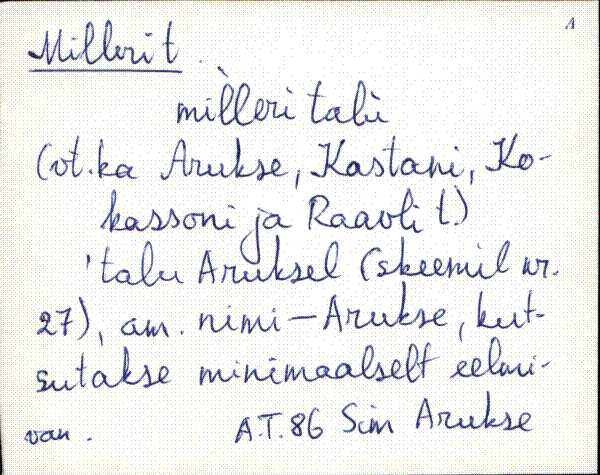 1
Milleri t.
mìlleri talu
(vt. ka Arukse, Kastani, Ko-
kassoni ja Raavli t.)
'talu Aruksel (skeemil nr.
27), am. nimi – Arukse, kut-
sutakse minimaalselt eelmi-
van. A.T. 86 Sim Arukse